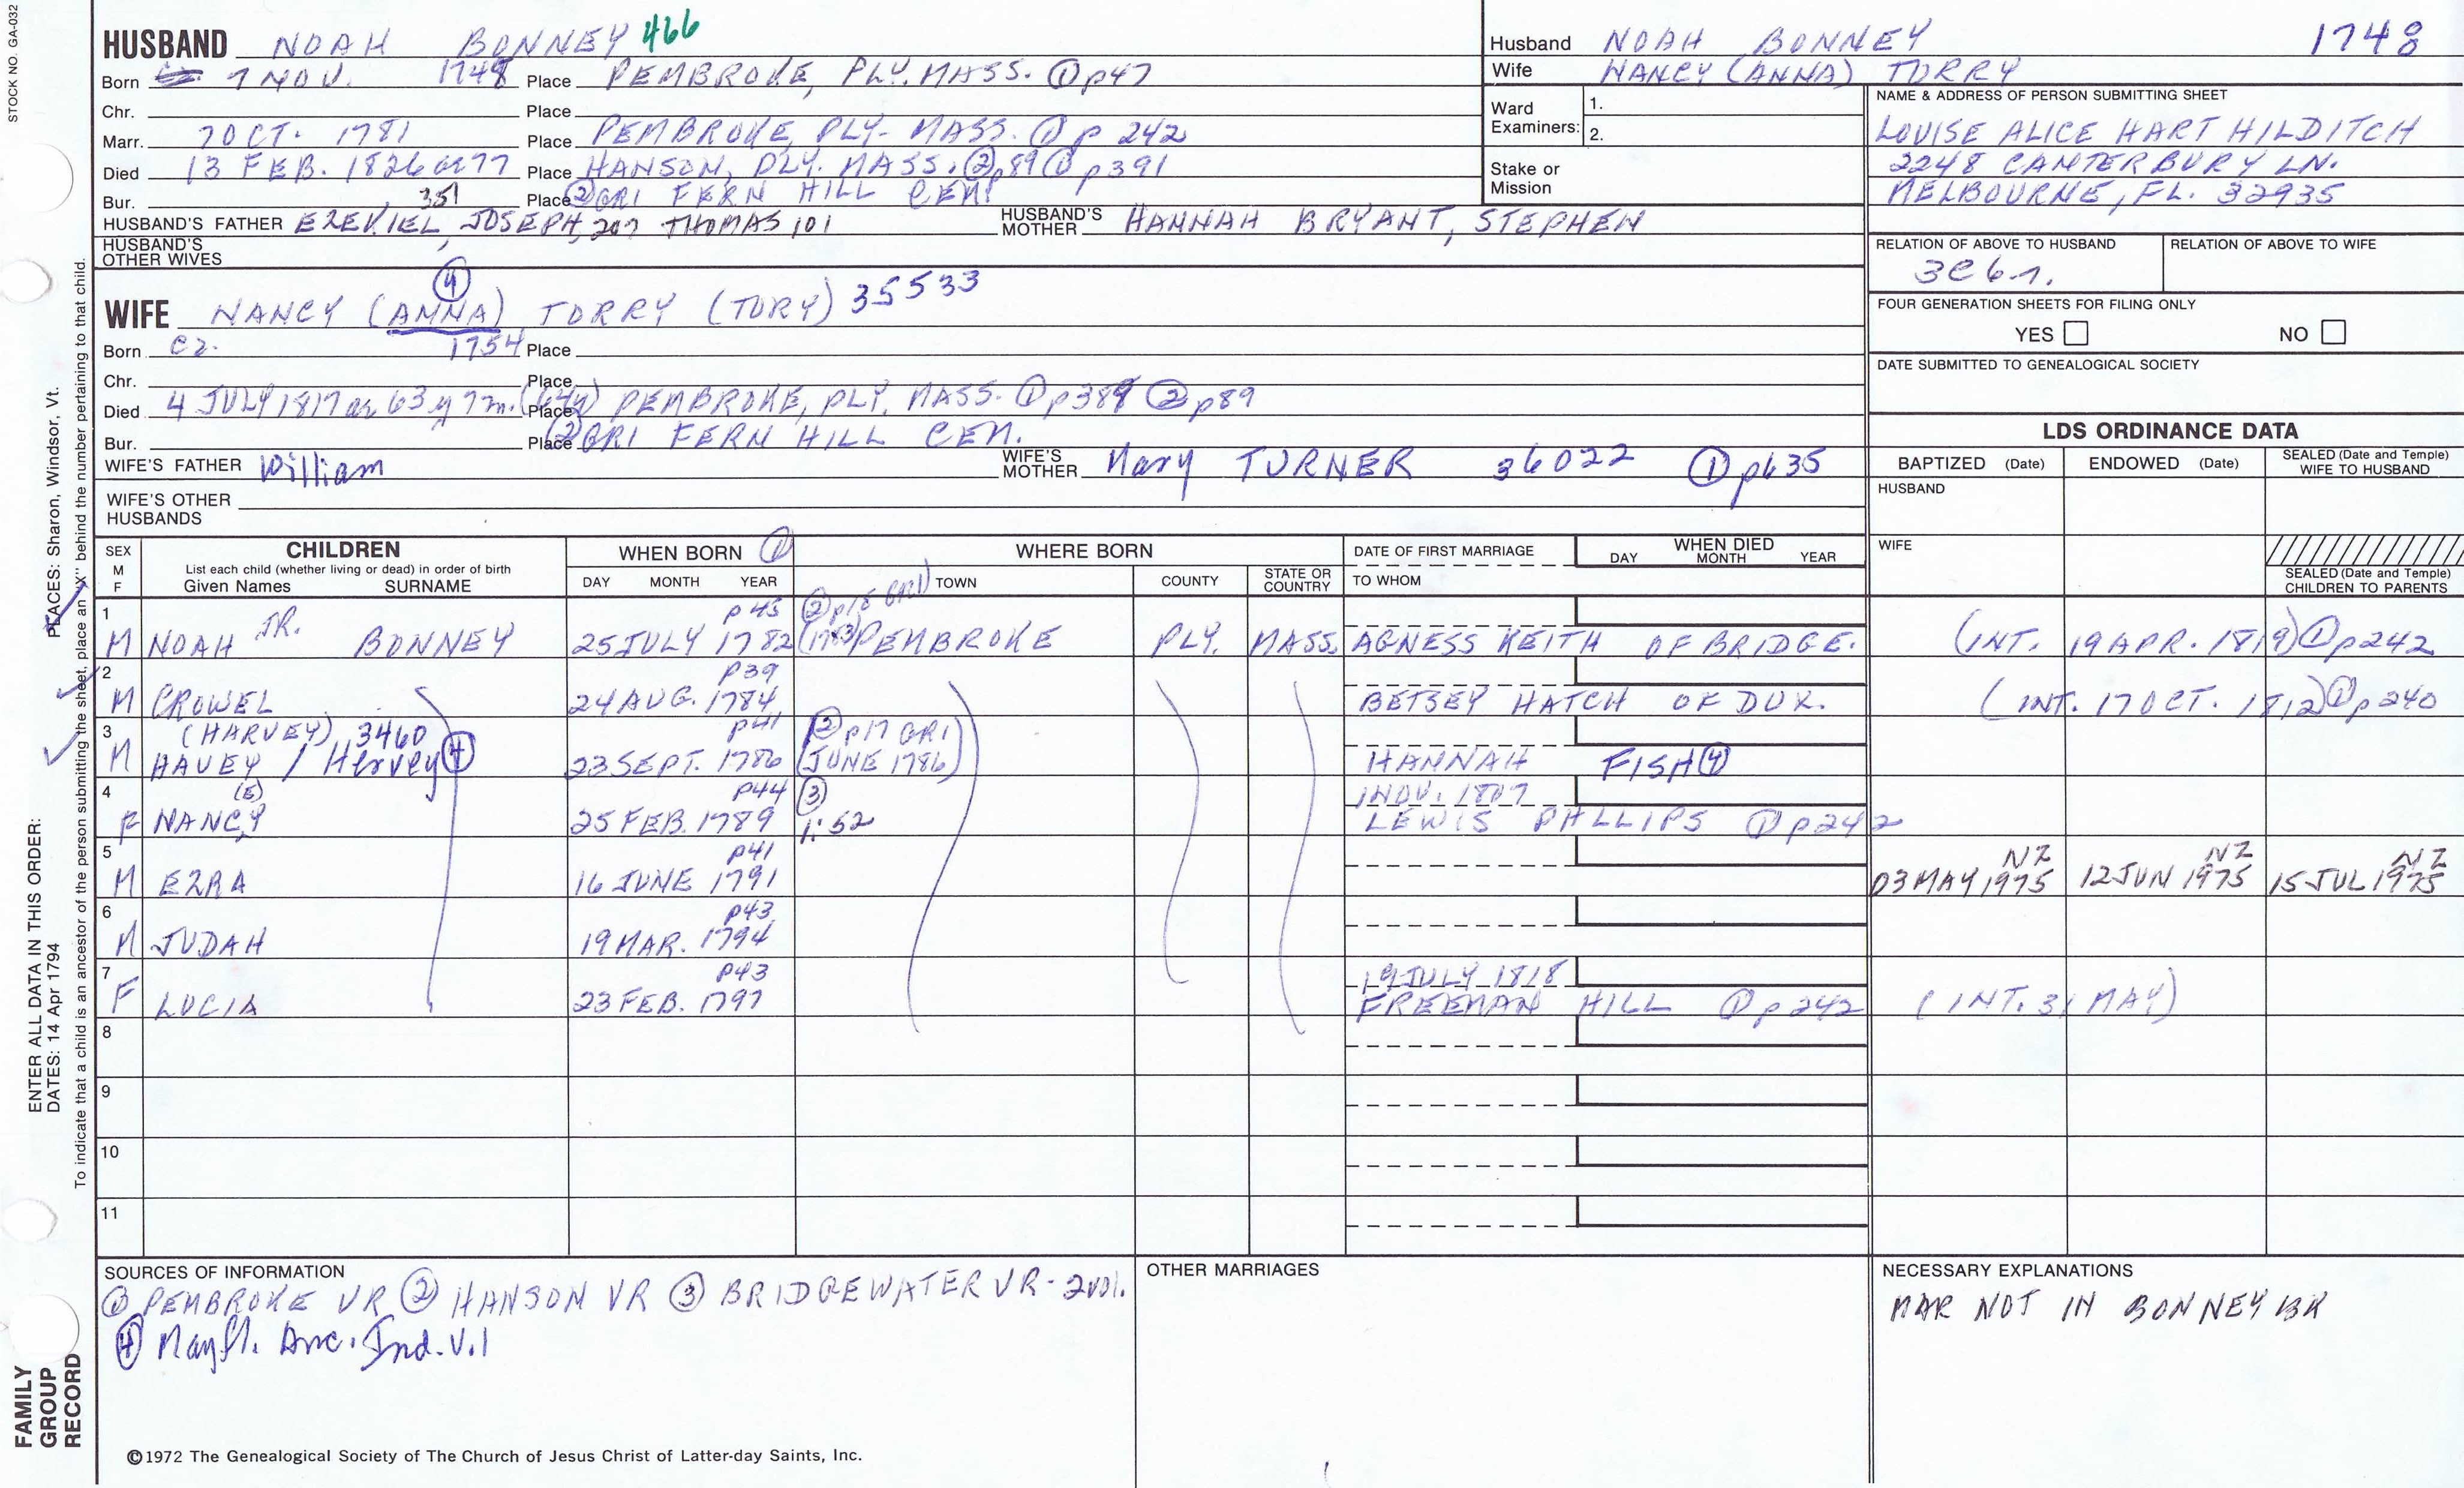 STOCK NO. GA-032
HUSBAND NOAH BONNEY 466
Born 7 NOV. 1748 Place PEMBROKE, PLY. MASS. ① p47
Chr. Place
Marr. 7 OCT. 1781 Place PEMBROKE, PLY. MASS. ① p 242
Died 13 FEB. 1826 ae 77 Place HANSON, PLY. MASS. ② p89 ① p391
Bur. 351 Place ② GR1 FERN HILL CEM.
HUSBAND'S FATHER EZEKIEL, JOSEPH, 207 THOMAS 101 HUSBAND'S MOTHER HANNAH BRYANT, STEPHEN
HUSBAND'S OTHER WIVES
④
WIFE NANCY (ANNA) TORRY (TORY) 35533
Born ca. 1754 Place
Chr. Place
Died 4 JULY 1817 ae 63 y 7 m. (64y) Place PEMBROKE, PLY. MASS. ① p389 ② p89
Bur. Place ② GR1 FERN HILL CEM.
WIFE'S FATHER William WIFE'S MOTHER Mary TURNER 36022 ① p635
WIFE'S OTHER HUSBANDS
Husband NOAH BONNEY 1748
Wife NANCY (ANNA) TORRY
Ward Examiners: 1.
2.
Stake or Mission
NAME & ADDRESS OF PERSON SUBMITTING SHEET
LOUISE ALICE HART HILDITCH
2248 CANTERBURY LN.
MELBOURNE, FL. 32935
RELATION OF ABOVE TO HUSBAND RELATION OF ABOVE TO WIFE
3C6r.
FOUR GENERATION SHEETS FOR FILING ONLY
YES NO
DATE SUBMITTED TO GENEALOGICAL SOCIETY
LDS ORDINANCE DATA
BAPTIZED (Date) ENDOWED (Date) SEALED (Date and Temple) WIFE TO HUSBAND
HUSBAND
WIFE
SEALED (Date and Temple) CHILDREN TO PARENTS
SEX M F CHILDREN List each child (whether living or dead) in order of birth Given Names SURNAME WHEN BORN ① DAY MONTH YEAR WHERE BORN TOWN COUNTY STATE OR COUNTRY DATE OF FIRST MARRIAGE TO WHOM WHEN DIED DAY MONTH YEAR
1 p45 ② p18 GR1)
M NOAH JR. BONNEY 25 JULY 1782 (1783) PEMBROKE PLY. MASS. AGNESS KEITH OF BRIDGE. (INT. 19 APR. 1819) ① p242
2 p39
M CROWEL 24 AUG. 1784 BETSEY HATCH OF DUX. (INT. 17 OCT. 1812) ① p240
3 (HARVEY) 3460 p41 (② p17 GR1)
M HAVEY / Hervey ④ 23 SEPT. 1786 (JUNE 1786) HANNAH FISH ④
4 (E) p44 ③ 1 NOV. 1807
F NANCY 25 FEB. 1789 1:52 LEWIS PHLLIPS ① p242
5 p41 NZ NZ NZ
M EZRA 16 JUNE 1791 03 MAY 1975 12 JUN 1975 15 JUL 1975
6 p43
M JUDAH 19 MAR. 1794
7 p43 19 JULY 1818
F LUCIA 23 FEB. 1797 FREEMAN HILL ① p242 (INT. 31 MAY)
8
9
10
11
SOURCES OF INFORMATION
① PEMBROKE VR ② HANSON VR ③ BRIDGEWATER VR - 2 vol.
④ Mayfl. Anc. Ind. V.1
OTHER MARRIAGES
NECESSARY EXPLANATIONS
MAR NOT IN BONNEY BK
©1972 The Genealogical Society of The Church of Jesus Christ of Latter-day Saints, Inc.
FAMILY GROUP RECORD
ENTER ALL DATA IN THIS ORDER:
DATES: 14 Apr 1794
PLACES: Sharon, Windsor, Vt.
To indicate that a child is an ancestor of the person submitting the sheet, place an "X" behind the number pertaining to that child.